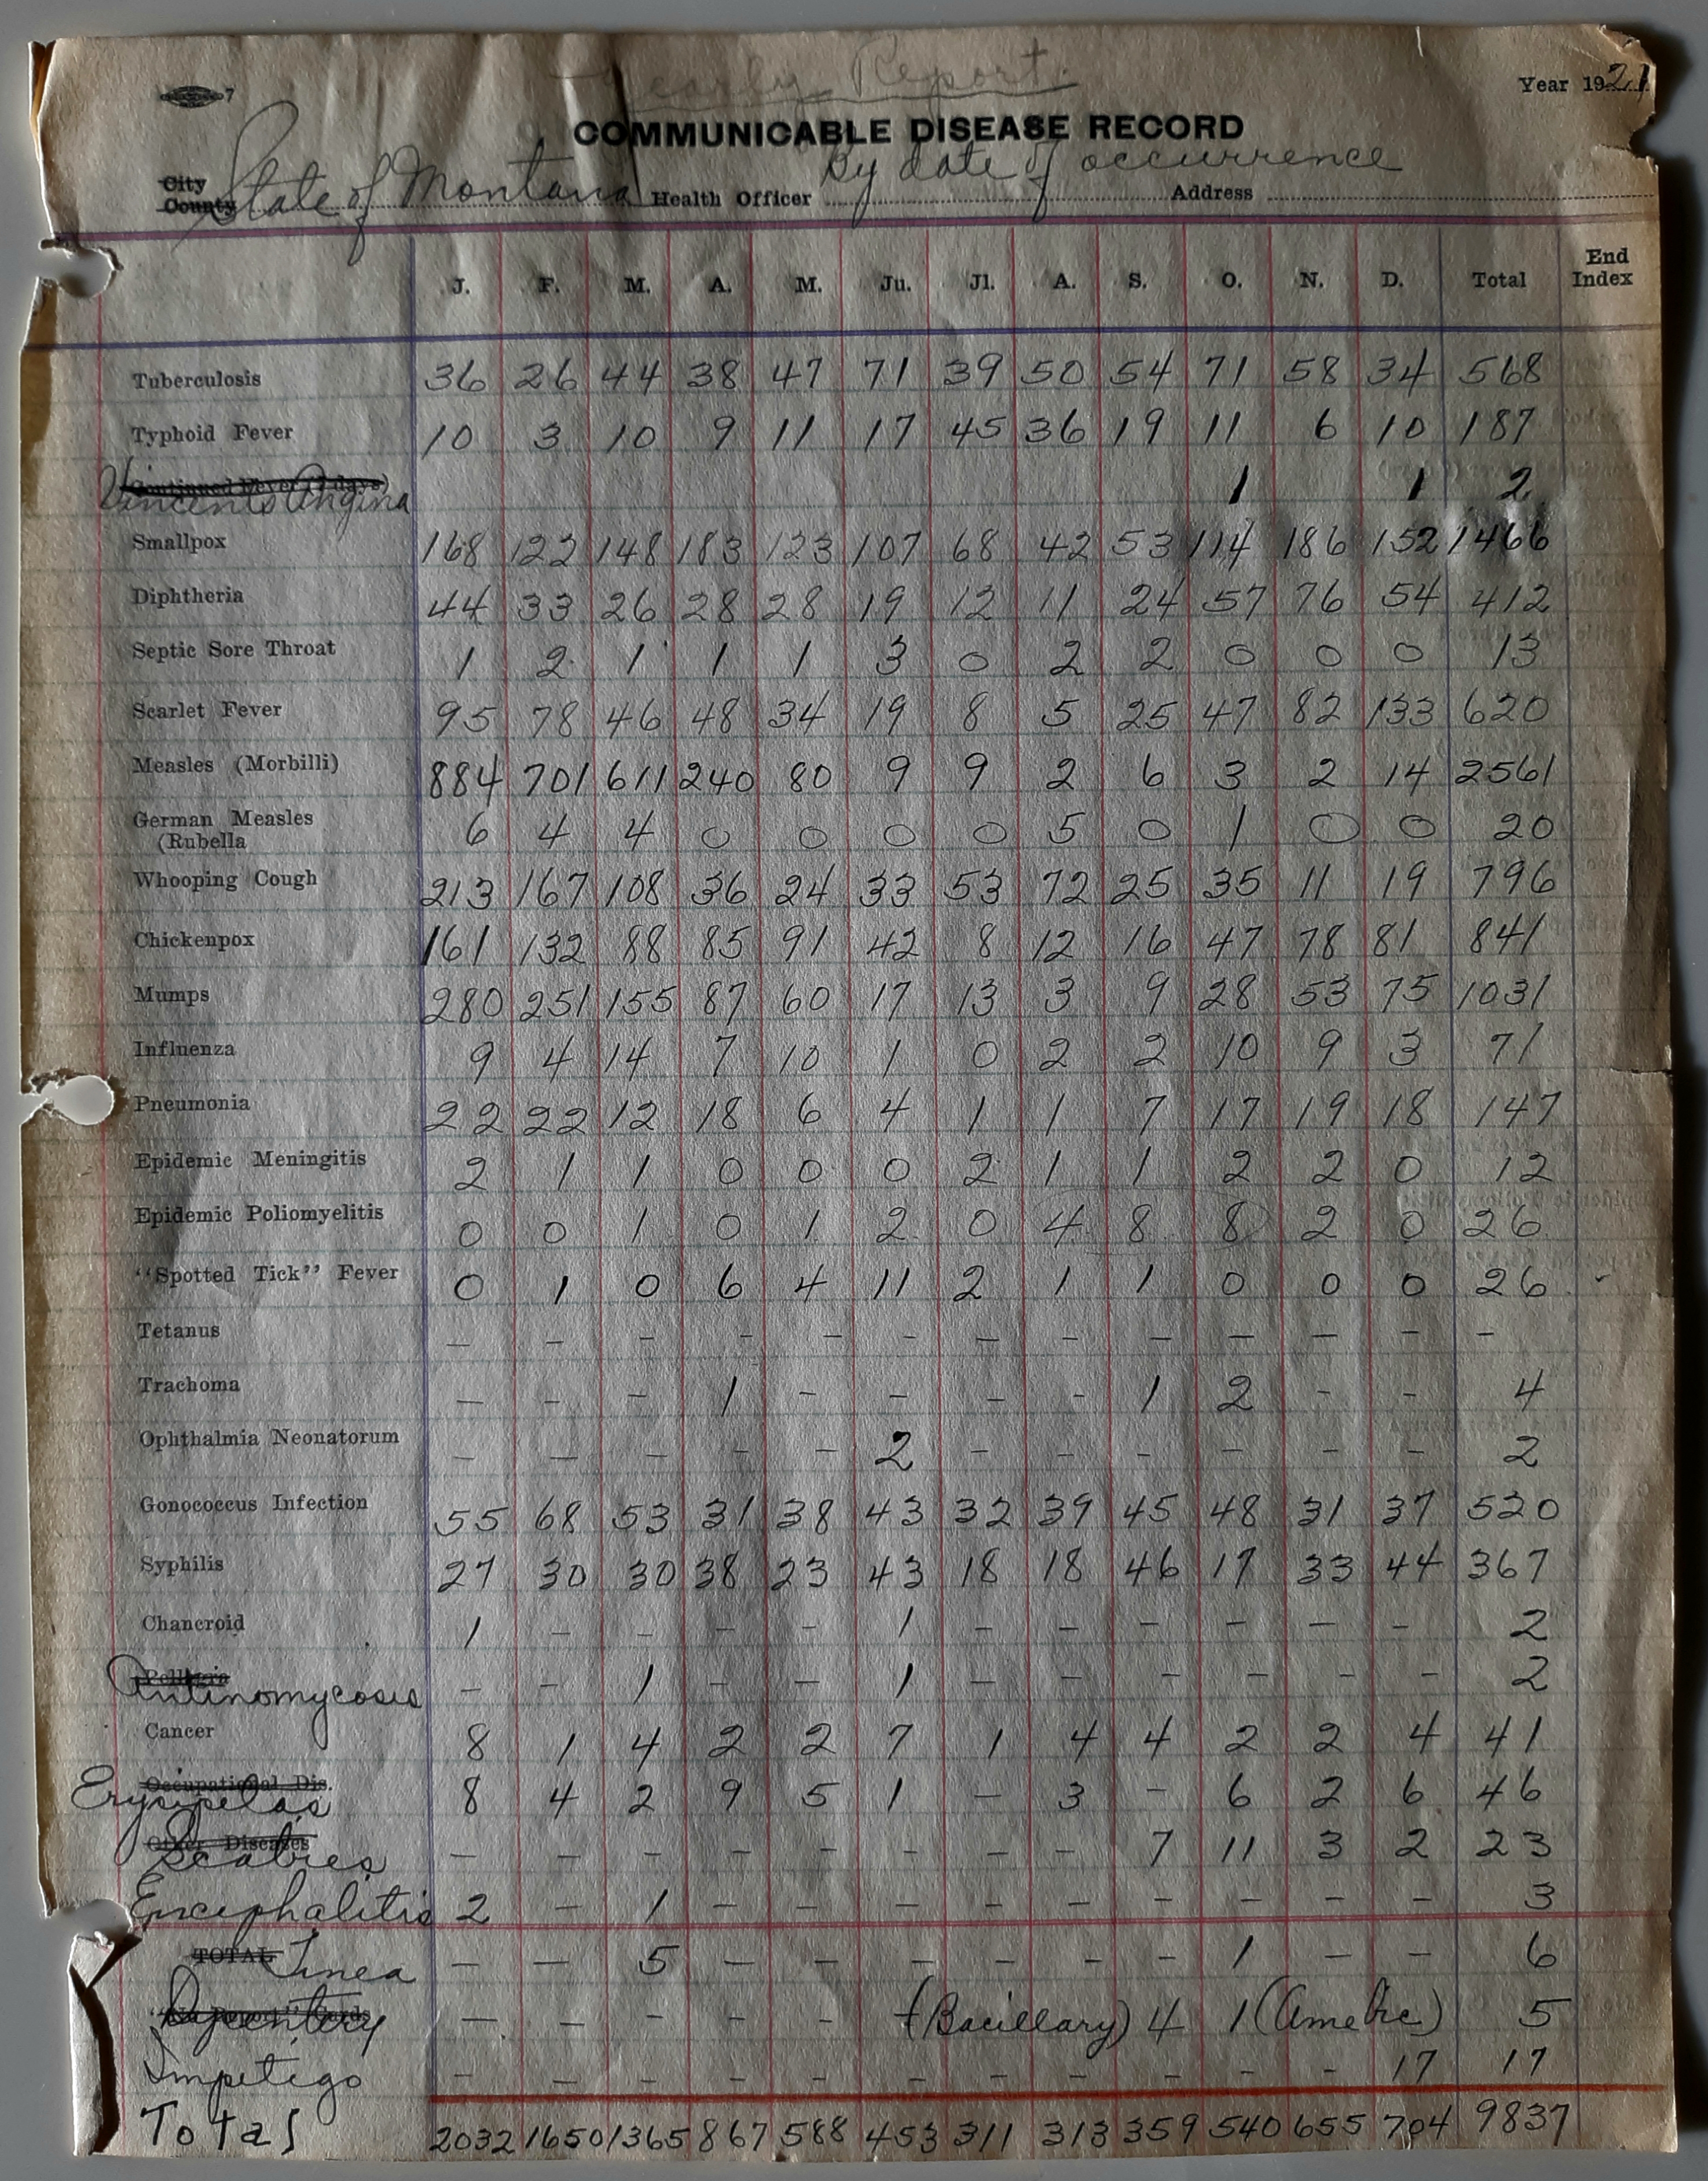 7
Yearly Report
Year 1921
COMMUNICABLE DISEASE RECORD
By date of occurrence
City
County State of Montana Health Officer Address
J. F. M. A. M. Ju. Jl. A. S. O. N. D. Total End Index
Tuberculosis 36 26 44 38 47 71 39 50 54 71 58 34 568
Typhoid Fever 10 3 10 9 11 17 45 36 19 11 6 10 187
Continued Fever (7 days)
Vincents Angina 1 1 2
Smallpox 168 122 148 183 123 107 68 42 53 114 186 152 1466
Diphtheria 44 33 26 28 28 19 12 11 24 57 76 54 412
Septic Sore Throat 1 2 1 1 1 3 0 2 2 0 0 0 13
Scarlet Fever 95 78 46 48 34 19 8 5 25 47 82 133 620
Measles (Morbilli) 884 701 611 240 80 9 9 2 6 3 2 14 2561
German Measles
(Rubella 6 4 4 0 0 0 0 5 0 1 0 0 20
Whooping Cough 213 167 108 36 24 33 53 72 25 35 11 19 796
Chickenpox 161 132 88 85 91 42 8 12 16 47 78 81 841
Mumps 280 251 155 87 60 17 13 3 9 28 53 75 1031
Influenza 9 4 14 7 10 1 0 2 2 10 9 3 71
Pneumonia 22 22 12 18 6 4 1 1 7 17 19 18 147
Epidemic Meningitis 2 1 1 0 0 0 2 1 1 2 2 0 12
Epidemic Poliomyelitis 0 0 1 0 1 2 0 4 8 8 2 0 26
"Spotted Tick" Fever 0 1 0 6 4 11 2 1 1 0 0 0 26
Tetanus – – – – – – – – – – – – –
Trachoma – – – 1 – – – – 1 2 – – 4
Ophthalmia Neonatorum – – – – – 2 – – – – – – 2
Gonococcus Infection 55 68 53 31 38 43 32 39 45 48 31 37 520
Syphilis 27 30 30 38 23 43 18 18 46 17 33 44 367
Chancroid 1 – – – – 1 – – – – – – 2
Pellagra
Antinomycosis – – 1 – – 1 – – – – – – 2
Cancer 8 1 4 2 2 7 1 4 4 2 2 4 41
Occupational Dis.
Erysipelas 8 4 2 9 5 1 – 3 – 6 2 6 46
Other Diseases
Scabies – – – – – – – – 7 11 3 2 23
Encephalitis 2 – 1 – – – – – – – – – 3
TOTAL Tinea – – 5 – – – – – – 1 – – 6
Dysentery – – – – – (Bacillary) 4 1 (Amebic) 5
Impetigo – – – – – – – – – – – 17 17
Total 2032 1650 1365 867 588 453 311 313 359 540 655 704 9837